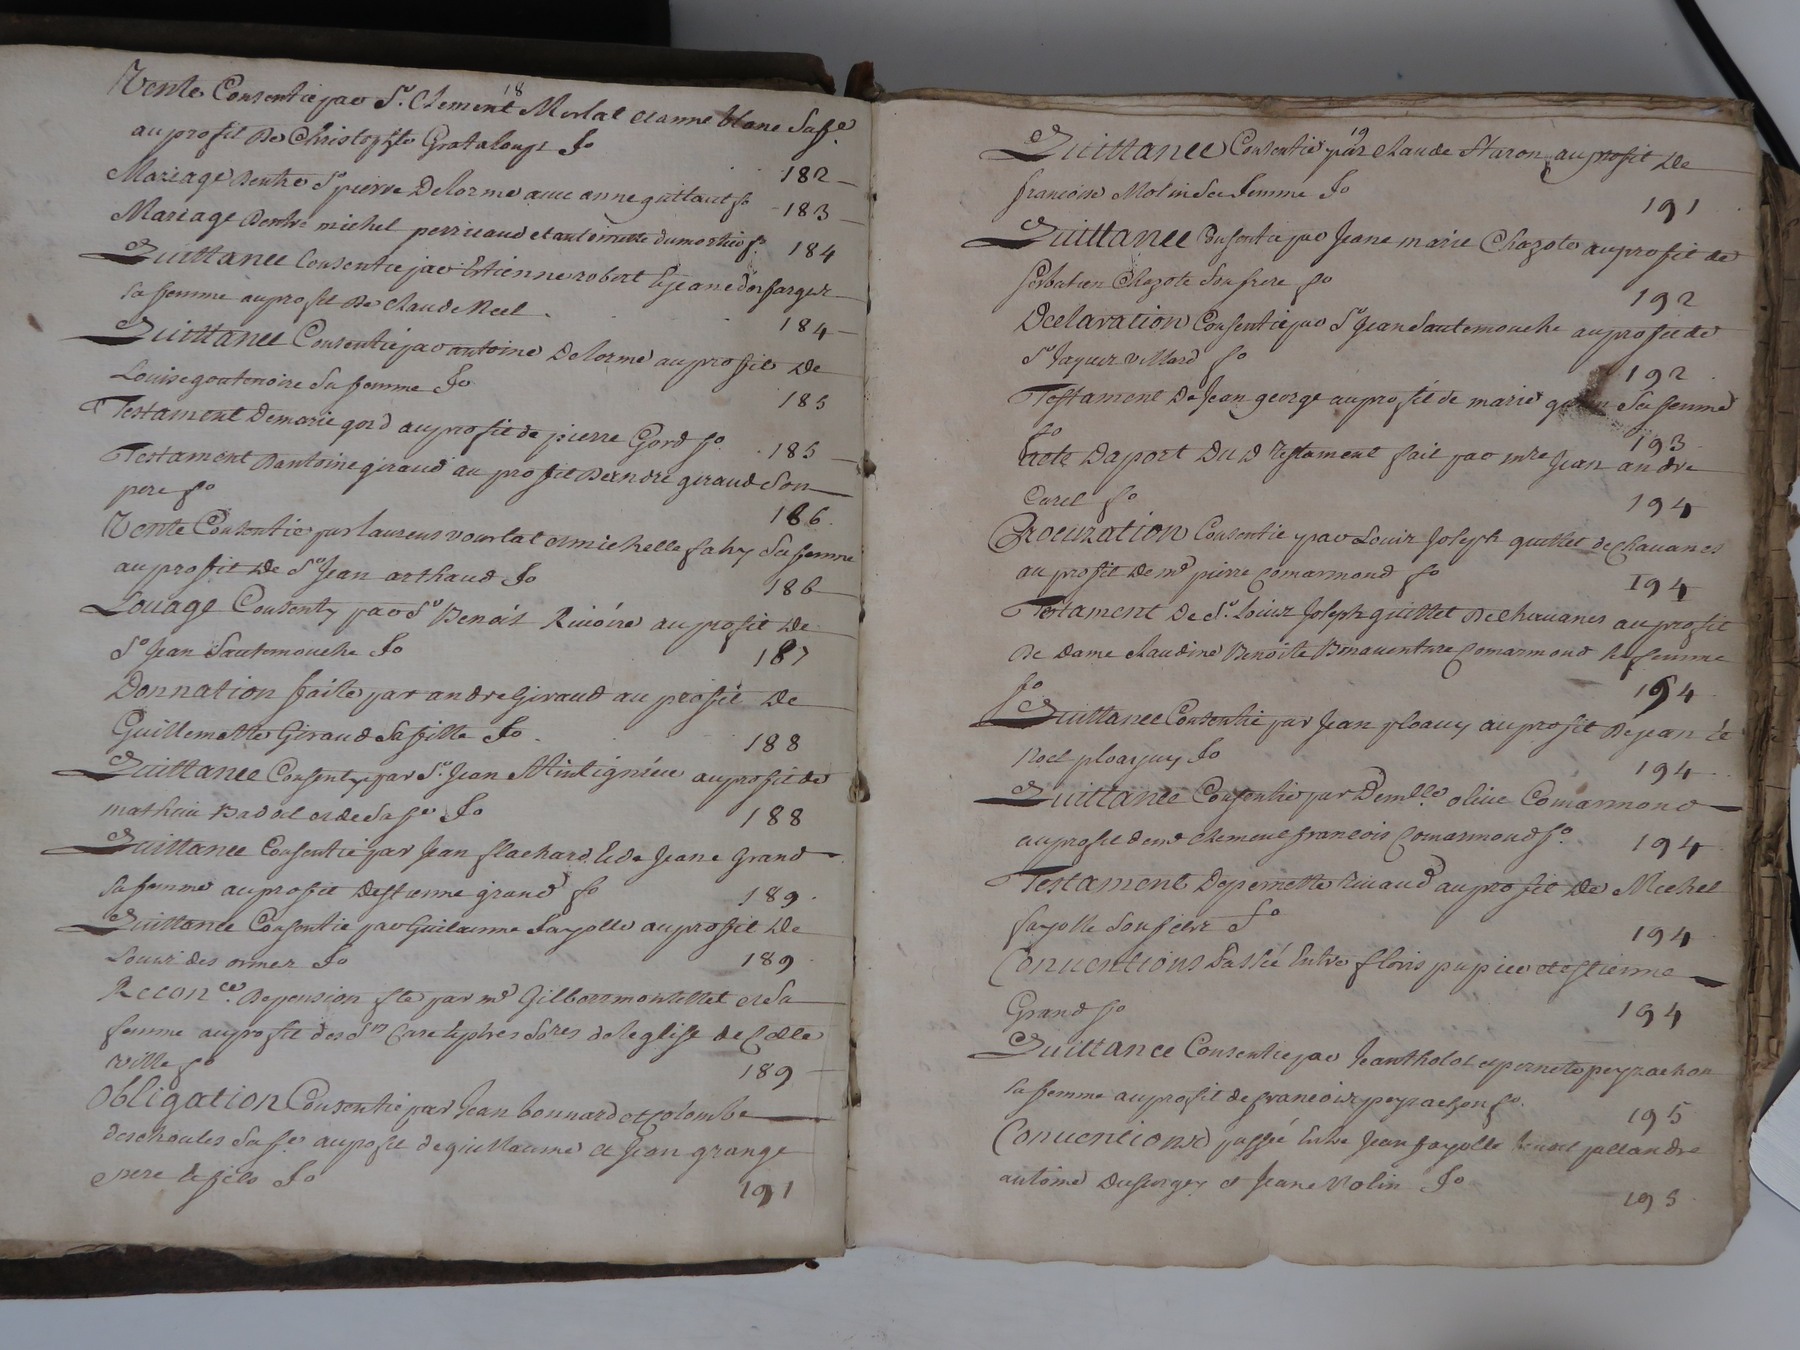 18
Vente Consentie par Sr. Clement Merlat et anne blanc Sa fe.
au profit De Christophle Grataloup fo 182
Mariage dentre Sr pierre Delorme avec anne guillaut fo 183
Mariage Dentre michel perricaud et antoinette dumortier fo. 184
Quittance Consentie par Estienne robert & jeane
sa femme au profit De Claude Neel 184
Quittance Consentie par antoine Delorme au profit De
Louise goutenoire Sa femme fo 185
Testament De marie gord au profit de pierre Gord fo. 185
Testament Dantoine giraud au profit Dandré giraud Son
pere fo 186
Vente Consentie par laurens vourlat et michelle fahy Sa femme
au profit De Sr Jean arthaud fo 186
Louage Consenty par Sr Benoit Riuoire au profit De
Sr Jean Sautemouche fo 187
Donnation faite par andre Giraud au profit De
Guillemette Giraud Sa fille fo 188
Quittance Consentye par Sr. Jean au profit de
mathieu Badol et de Sa fe fo 188
Quittance Consentie par Jean flachard & de Jeane Grand
Sa femme au profit Destienne grand fo 189
Quittance Consentie par Guilaume Fayolle au profit De
Louis des ormes fo 189
Reconce. De pension fte par mr Gilbert montellet et Sa
femme au profit des Srs Curé & pbres de leglise de Cette
ville fo 189
Obligation Consentie par Jean bonnard et Colombe
deschoules Sa fe au profit de guillaume et Jean grange
pere & fils fo 191
19
Quittance Consentie par Claude Naron au profit De
francoise Molin Sa femme fo 191
Quittance Consentie par Jeane marie Chazote au profit de
Sebastien Chazote Son frere fo 192
Declaration Consentie par Sr Jean Sautemouche au profit de
Sr Jaques Villard fo 192
Testament De Jean george au profit de marie Sa femme
fo 193
Acte Daport Du D Testament fait par mre Jean andre
Curel fo 194
Procuration Consentie par Louis Joseph guillet de Chavanes
au profit De mr pierre Comarmond fo 194
Testament De Sr. Louis Joseph guillet De Chavanes au profit
de Dame Claudine Benoite Bonaventure Comarmond Sa femme
fo 194
Quittance Consentie par Jean au profit De jean &
Noel fo 194
Quittance Consentie par Demlle olive Comarmond
au profit de mr Clement francois Comarmond fo. 194
Testament De pernette Rivaud au profit De Michel
fayolle Son fo 194
Conventions Passée Entre floris pupier et Estienne
Grand fo 194
Quittance Consentie par Jean tholot et pernete peyrachon
Sa femme au profit de francois peyrachon fo. 195
Conventions passée Entre Jean fayolle
antoine et Jeane Molin fo 195